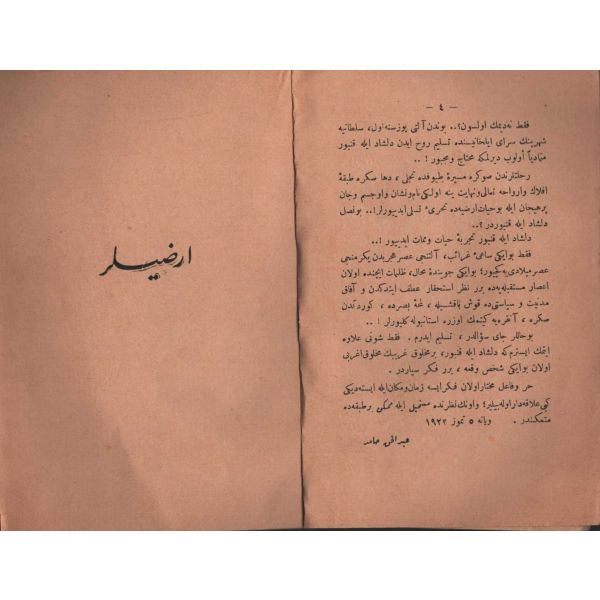 — ٤ —
فقط نه‌ديمك اولسون؟.. بوندن آلتى يوز سنه اول، سلطانيه
شهرينك سراى ايلخانيسنده تسليم روح ايدن دلشاد ايله قنبور
متماديا اولوب ديرلمكه محتاج و مجبور ! ..
رحلتلرندن صوكره مسيرۀ طيوفده تجلى ، دها صكره طبقۀ
افلاك وارواحه تعالى ونهايت ينه اولكى نام ونشان واوجسم وجان
پرهيجان ايله بوحيات ارضيه‌ده تحرئ تسلى ايدييورلر!.. بونصل
دلشاد ايله قنبوردر ؟..
دلشاد ايله قنبور تجربۀ حيات وممات ايدييور !..
فقط بوايكى ساعئ غرائب، آلتنجى عصر هجريدن يكرمنجى
عصر ميلادى‌يه كچييور؛ بوايكى جوينده محال، ظلمات ايچنده اولان
اعصار مستقبله‌يه‌ده برر نظر استحقار عطف ايتدكدن و آفاق
مدنيت و سياستى‌ده قوش باقيشيله ، بصره‌ده ، كوردكدن
صكره ، آنقره‌يه كيتمك اوزره استانبوله كلييورلر ! ..
بوحاللر جاى سؤالدر ، تسليم ايدرم . فقط شونى علاوه
ايتمك ايسترم كه دلشاد ايله قنبور، برمخلوق غريبك مخلوق اغربى
اولان بوايكى شخص وقعه ، برر فكر سياردر .
حر وفاعل مختار اولان فكر ايسه زمان ومكان ايله ايسته‌ديكى
كبى علاقه‌دار اوله‌بيلير؛ واونك نظرنده مستحيل ايله ممكن برطبقه‌ده
متمكندر . ويانه ٥ تموز ١٩٢٢
عبدالحق حامد
ارضيلر